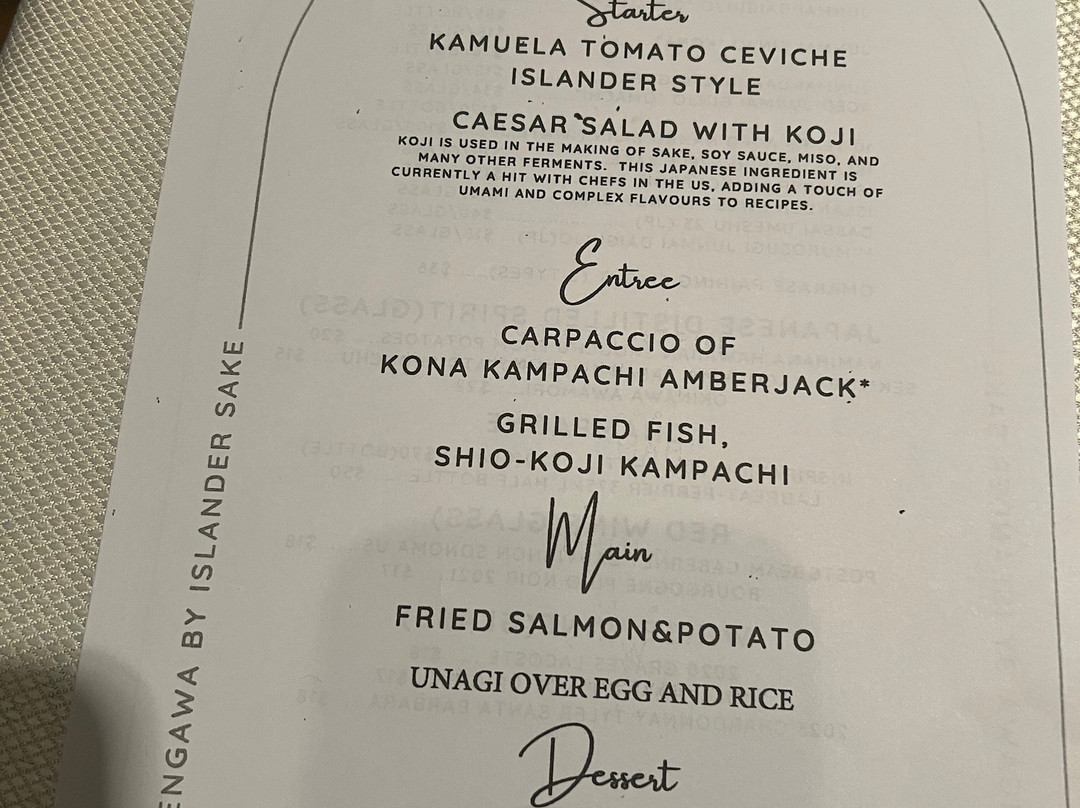 Starter
KAMUELA TOMATO CEVICHE
ISLANDER STYLE
CAESAR SALAD WITH KOJI
KOJI IS USED IN THE MAKING OF SAKE, SOY SAUCE, MISO, AND
MANY OTHER FERMENTS. THIS JAPANESE INGREDIENT IS
CURRENTLY A HIT WITH CHEFS IN THE US, ADDING A TOUCH OF
UMAMI AND COMPLEX FLAVOURS TO RECIPES.
Entree
CARPACCIO OF
KONA KAMPACHI AMBERJACK*
GRILLED FISH,
SHIO-KOJI KAMPACHI
Main
FRIED SALMON&POTATO
UNAGI OVER EGG AND RICE
Dessert
ENGAWA BY ISLANDER SAKE